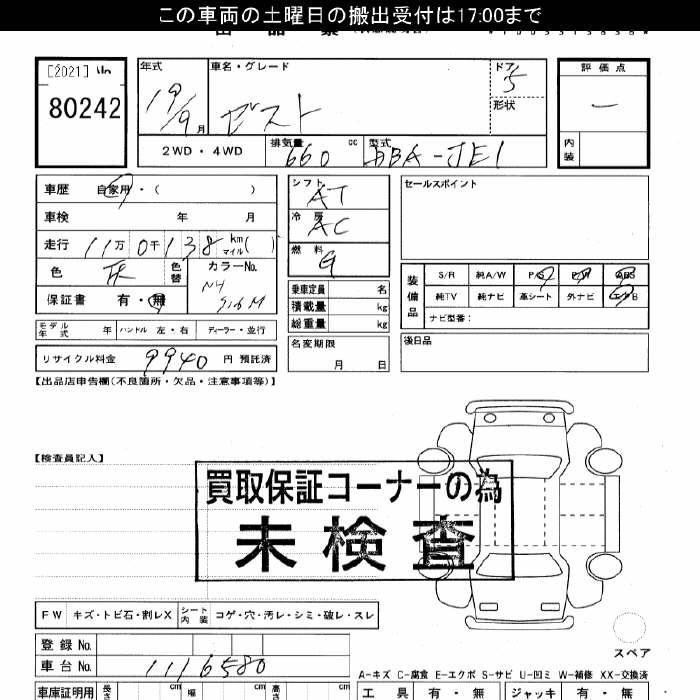 この車両の土曜日の搬出受付は17:00まで
[2021]
80242
年式
19/9月
車名・グレード
ゼスト
ドア
5
形状
評価点
ー
内装
2WD・4WD
排気量
660 cc
型式
DBA-JE1
車歴 自家用・( )
車検 年 月
走行 11万 0千 138 km マイル( )
色 灰 色替
カラーNo.
NH
保証書 有・無
シフト
AT
冷房
AC
燃料
G
乗車定員 名
積載量 kg
総重量 kg
セールスポイント
装備品
S/R 純A/W P/S P/W ABS
純TV 純ナビ 革シート 外ナビ
ナビ型番:
モデル年式 年 ハンドル 左・右 ディーラー・並行
名変期限
月 日
後日品
リサイクル料金 9940 円 預託済
【出品店申告欄(不良箇所・欠品・注意事項等)】
【検査員記入】
買取保証コーナーの為
未検査
FW キズ・トビ石・割レX シート内装 コゲ・穴・汚レ・シミ・破レ・スレ
スペア
登録No.
車台No. 1116580
A-キズ C-腐食 E-エクボ S-サビ U-凹ミ W-補修 XX-交換済
車庫証明用 長さ cm 幅 cm 高さ cm
工具 有・無 ジャッキ 有・無